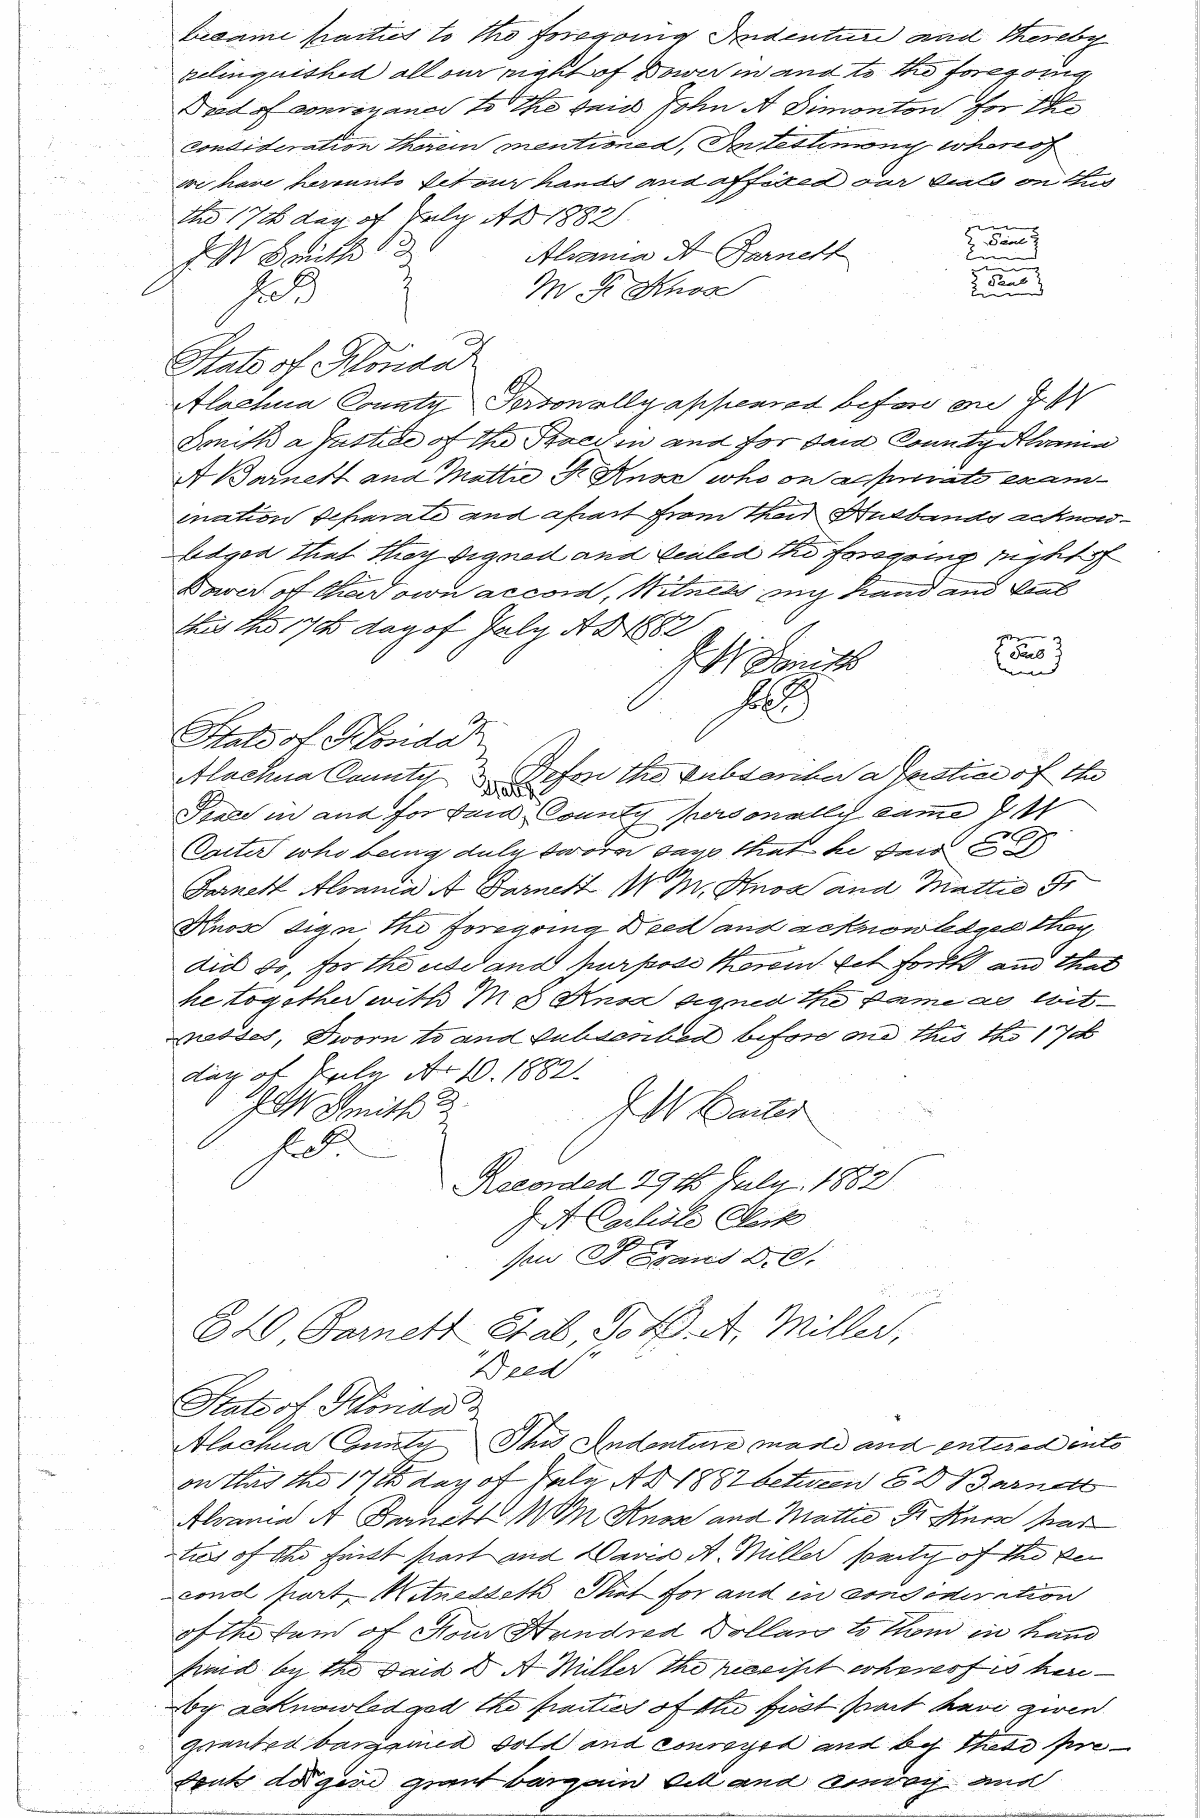 became parties to the foregoing Indenture and thereby
relinquished all our right of Dower in and to the foregoing
Deed of conveyance to the said John A Simonton for the
consideration therein mentioned, In testimony whereof
we have hereunto set our hands and affixed our seals on this
the 17th day of July AD 1882
J W Smith Alvania A Barnett Seal
J.P. M. F. Knox Seal
State of Florida
Alachua County Personally appeared before me J. W
Smith a Justice of the Peace in and for said County Alvania
A Barnett and Mattie F. Knox who on a private exam-
ination separate and apart from their Husbands acknow-
ledged that they signed and sealed the foregoing right of
Dower of their own accord, Witness my hand and seal
this the 17th day of July AD 1882
J W Smith Seal
J.P.
State of Florida
Alachua County Before the subscriber a Justice of the
State
Peace in and for said County personally came J W
Carter who being duly sworn says that he saw E D
Barnett Alvania A Barnett W M. Knox and Mattie F.
Knox sign the foregoing Deed and acknowledged they
did so, for the use and purpose therein set forth and that
he together with M S Knox signed the same as wit-
nesses, Sworn to and subscribed before me this the 17th
day of July A. D. 1882.
J W Smith J W Carter
J. P.
Recorded 29th July. 1882
J A Carlisle Clerk
per Evans D. C.
E D, Barnett Et al, To D. A. Miller,
"Deed"
State of Florida
Alachua County This Indenture made and entered into
on this the 17th day of July AD 1882 between E D Barnett
Alvania A Barnett W M Knox and Mattie F. Knox par
ties of the first part and David A. Miller party of the se
cond part, Witnesseth That for and in consideration
of the sum of Four Hundred Dollars to them in hand
paid by the said D A Miller the receipt whereof is here-
by acknowledged the parties of the first part have given
granted bargained sold and conveyed and by these pre-
sents do give grant bargain sell and convey and